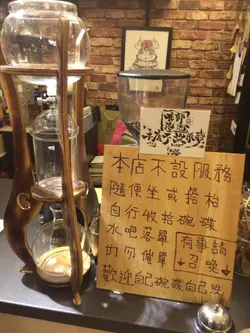 本店不設服務
隨便坐或搭枱
自行收拾碗碟
水吧落單
切勿催單
有事請
↓召喚↓
歡迎自己碗碟自己洗